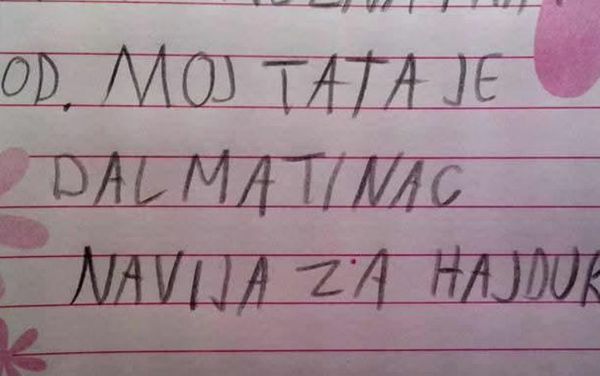 OD. MOJ TATA JE
DALMATINAC
NAVIJA ZA HAJDUK